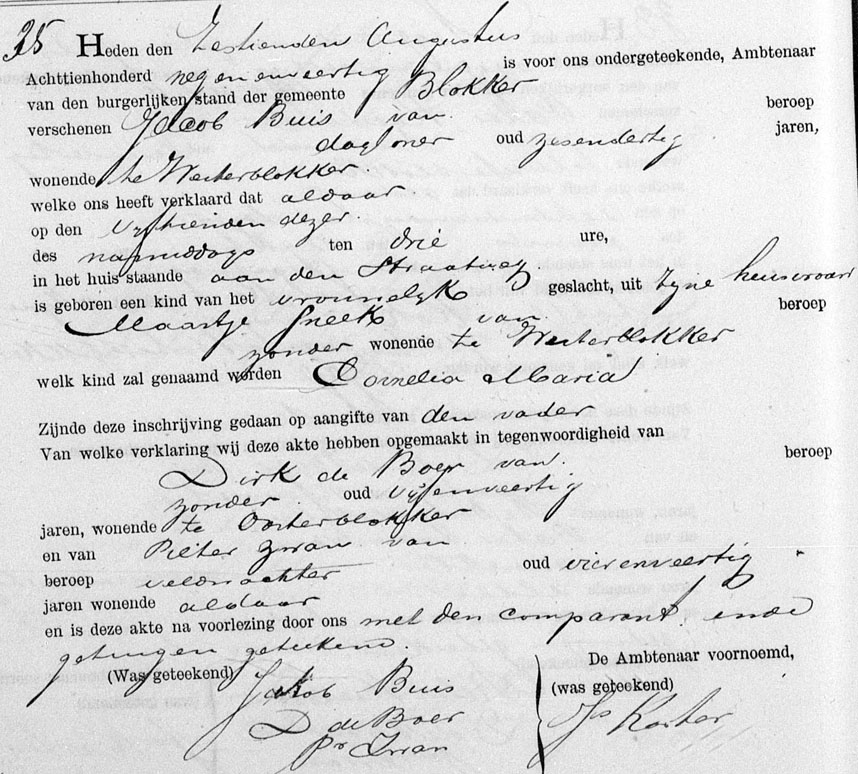 35 Heden den Zestienden Augustus
Achttienhonderd negenenveertig is voor ons ondergeteekende, Ambtenaar
van den burgerlijken stand der gemeente Blokker
verschenen Jacob Buis van beroep
dagloner oud zesendertig jaren,
wonende te Westerblokker
welke ons heeft verklaard dat aldaar
op den vijftienden dezer
des namiddags ten drie ure,
in het huis staande aan den Straatweg
is geboren een kind van het vrouwelyk geslacht, uit zyne huisvrouw
Maartje Sneek van beroep
zonder wonende te Westerblokker
welk kind zal genaamd worden Cornelia Maria
Zijnde deze inschrijving gedaan op aangifte van den vader
Van welke verklaring wij deze akte hebben opgemaakt in tegenwoordigheid van
Dirk de Boer van beroep
zonder oud vijfenveertig
jaren, wonende te Oosterblokker
en van Pieter Zwan van
beroep veldwachter oud vierenveertig
jaren wonende aldaar
en is deze akte na voorlezing door ons met den comparant ende
getuigen geteekend.
(Was geteekend) Jakob Buis
De Ambtenaar voornoemd,
D de Boer
(was geteekend)
Pr Zwan
Js Koster